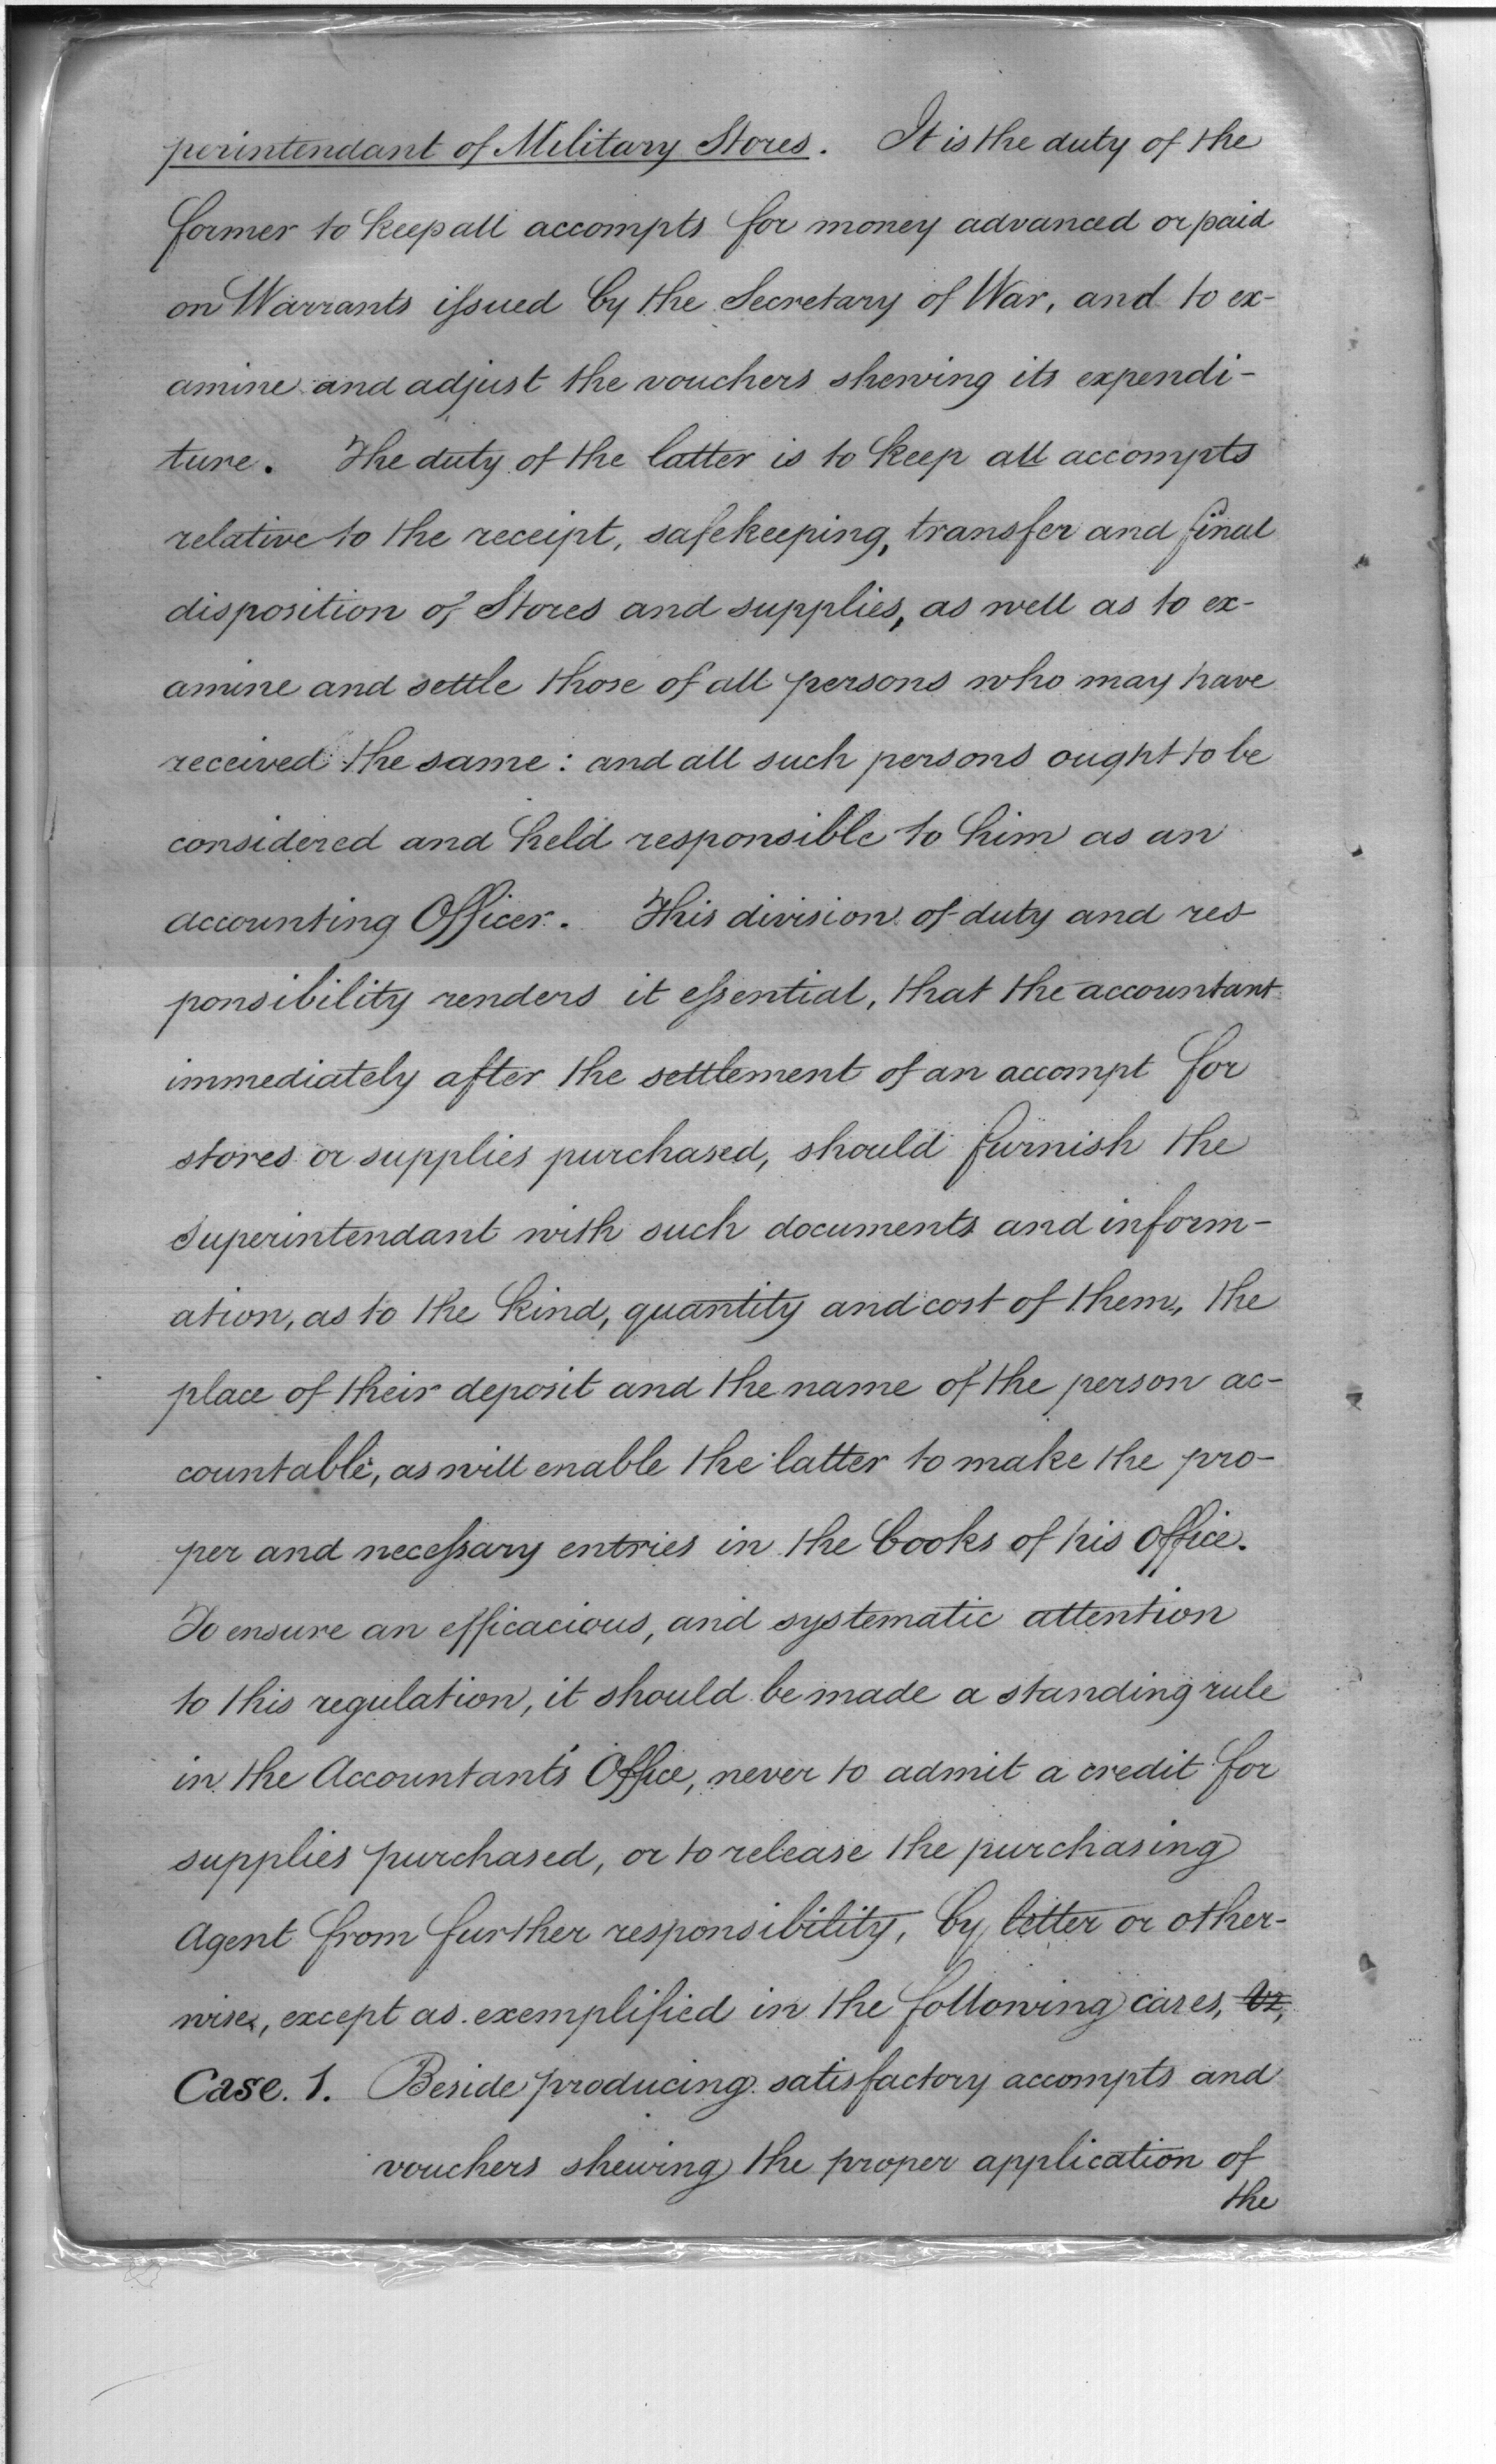 perintendant of Military Stores. It is the duty of the
former to keep all accompts for money advanced or paid
on Warrants issued by the Secretary of War, and to ex-
amine and adjust the vouchers shewing its expendi-
ture. The duty of the latter is to keep all accompts
relative to the receipt, safekeeping, transfer and final
disposition of Stores and supplies, as well as to ex-
amine and settle those of all persons who may have
received the same: and all such persons ought to be
considered and held responsible to him as an
accounting Officer. This division of duty and res
ponsibility renders it essential, that the accountant
immediately after the settlement of an accompt for
stores or supplies purchased, should furnish the
Superintendant with such documents and inform-
ation, as to the kind, quantity and cost of them, the
place of their deposit and the name of the person ac-
countable, as will enable the latter to make the pro-
per and necessary entries in the books of his office.
To ensure an efficacious, and systematic attention
to this regulation, it should be made a standing rule
in the Accountant's Office, never to admit a credit for
supplies purchased, or to release the purchasing
Agent from further responsibility, by letter or other-
wise, except as exemplified in the following cases, Vz,
Case. 1. Beside producing satisfactory accompts and
vouchers shewing the proper application of
the